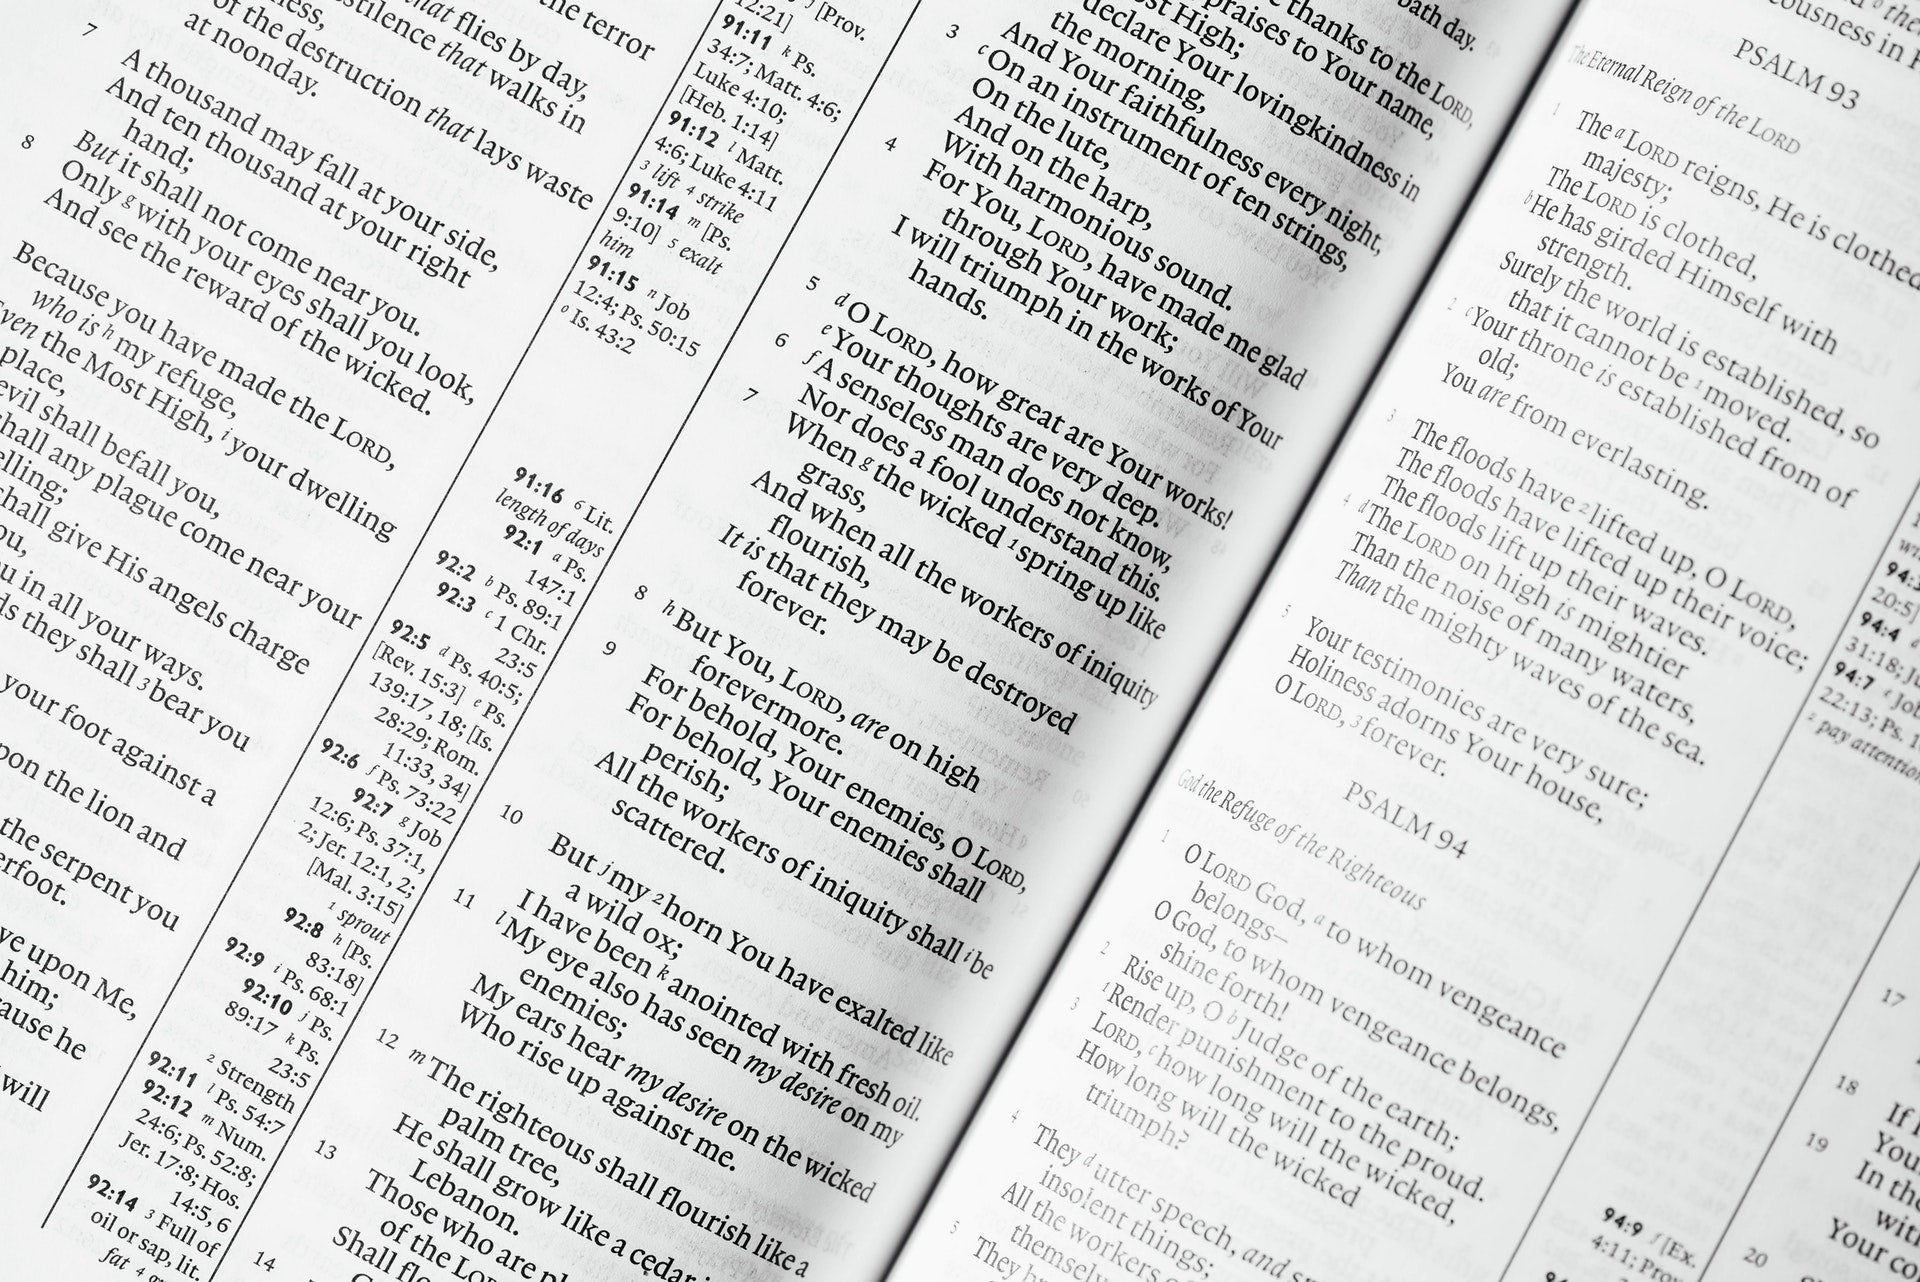 the terror
that flies by day,
stilence that walks in
of the destruction that lays waste
at noonday.
7
A thousand may fall at your side,
And ten thousand at your right
hand;
But it shall not come near you.
8
Only g with your eyes shall you look,
And see the reward of the wicked.
Because you have made the LORD,
who is h my refuge,
the Most High, i your dwelling
place,
evil shall befall you,
shall any plague come near your
elling;
shall give His angels charge
ou,
in all your ways.
they shall 3 bear you
your foot against a
upon the lion and
the serpent you
erfoot.
upon Me,
him;
ause he
will
12:21]
[Prov.
91:11 k Ps.
34:7; Matt. 4:6;
Luke 4:10;
[Heb. 1:14]
91:12 l Matt.
4:6; Luke 4:11
3 lift 4 strike
91:14 m [Ps.
9:10] 5 exalt
him
91:15 n Job
12:4; Ps. 50:15
o Is. 43:2
91:16 6 Lit.
length of days
92:1 a Ps.
147:1
92:2 b Ps. 89:1
92:3 c 1 Chr.
23:5
92:5 d Ps. 40:5;
[Rev. 15:3] e Ps.
139:17, 18; [Is.
28:29; Rom.
11:33, 34]
92:6 f Ps. 73:22
92:7 g Job
12:6; Ps. 37:1,
2; Jer. 12:1, 2;
[Mal. 3:15]
1 sprout
92:8 h [Ps.
83:18]
92:9 i Ps. 68:1
92:10 j Ps.
89:17 k Ps.
23:5
2 Strength
92:11 l Ps. 54:7
92:12 m Num.
24:6; Ps. 52:8;
Jer. 17:8; Hos.
14:5, 6
92:14 3 Full of
oil or sap, lit.
fat 4
bath day.
thanks to the LORD,
praises to Your name,
ost High;
declare Your lovingkindness in
the morning,
And Your faithfulness every night,
3
c On an instrument of ten strings,
On the lute,
And on the harp,
With harmonious sound.
4
For You, LORD, have made me glad
through Your work;
I will triumph in the works of Your
hands.
5
d O LORD, how great are Your works!
e Your thoughts are very deep.
6
f A senseless man does not know,
Nor does a fool understand this.
7
When g the wicked 1 spring up like
grass,
And when all the workers of iniquity
flourish,
It is that they may be destroyed
forever.
8
h But You, LORD, are on high
forevermore.
9
For behold, Your enemies, O LORD,
For behold, Your enemies shall
perish;
All the workers of iniquity shall i be
scattered.
10
But j my 2 horn You have exalted like
a wild ox;
I have been k anointed with fresh oil.
11
l My eye also has seen my desire on my
enemies;
My ears hear my desire on the wicked
Who rise up against me.
12
m The righteous shall flourish like a
palm tree,
He shall grow like a cedar
Lebanon.
13
Those who are pl
of the LO
Shall flo
14
PSALM 93
The Eternal Reign of the LORD
1
The a LORD reigns, He is clothed
majesty;
The LORD is clothed,
b He has girded Himself with
strength.
Surely the world is established, so
that it cannot be 1 moved.
2
c Your throne is established from of
old;
You are from everlasting.
3
The floods have 2 lifted up, O LORD,
The floods have lifted up their voice;
The floods lift up their waves.
4
d The LORD on high is mightier
Than the noise of many waters,
Than the mighty waves of the sea.
5
Your testimonies are very sure;
Holiness adorns Your house,
O LORD, 3 forever.
PSALM 94
God the Refuge of the Righteous
1
O LORD God, a to whom vengeance
belongs—
O God, to whom vengeance belongs,
shine forth!
2
Rise up, O b Judge of the earth;
Render punishment to the proud.
3
LORD, c how long will the wicked,
How long will the wicked
triumph?
4
They d utter speech, and
insolent things;
All the workers
themsel
5
They
94:
20:5]
94:4
31:18;
94:7 e Job
22:13; Ps.
2 pay attention
94:9 f [Ex.
4:11; Prov
17
18
If
19
You
In the
with
Your co
20